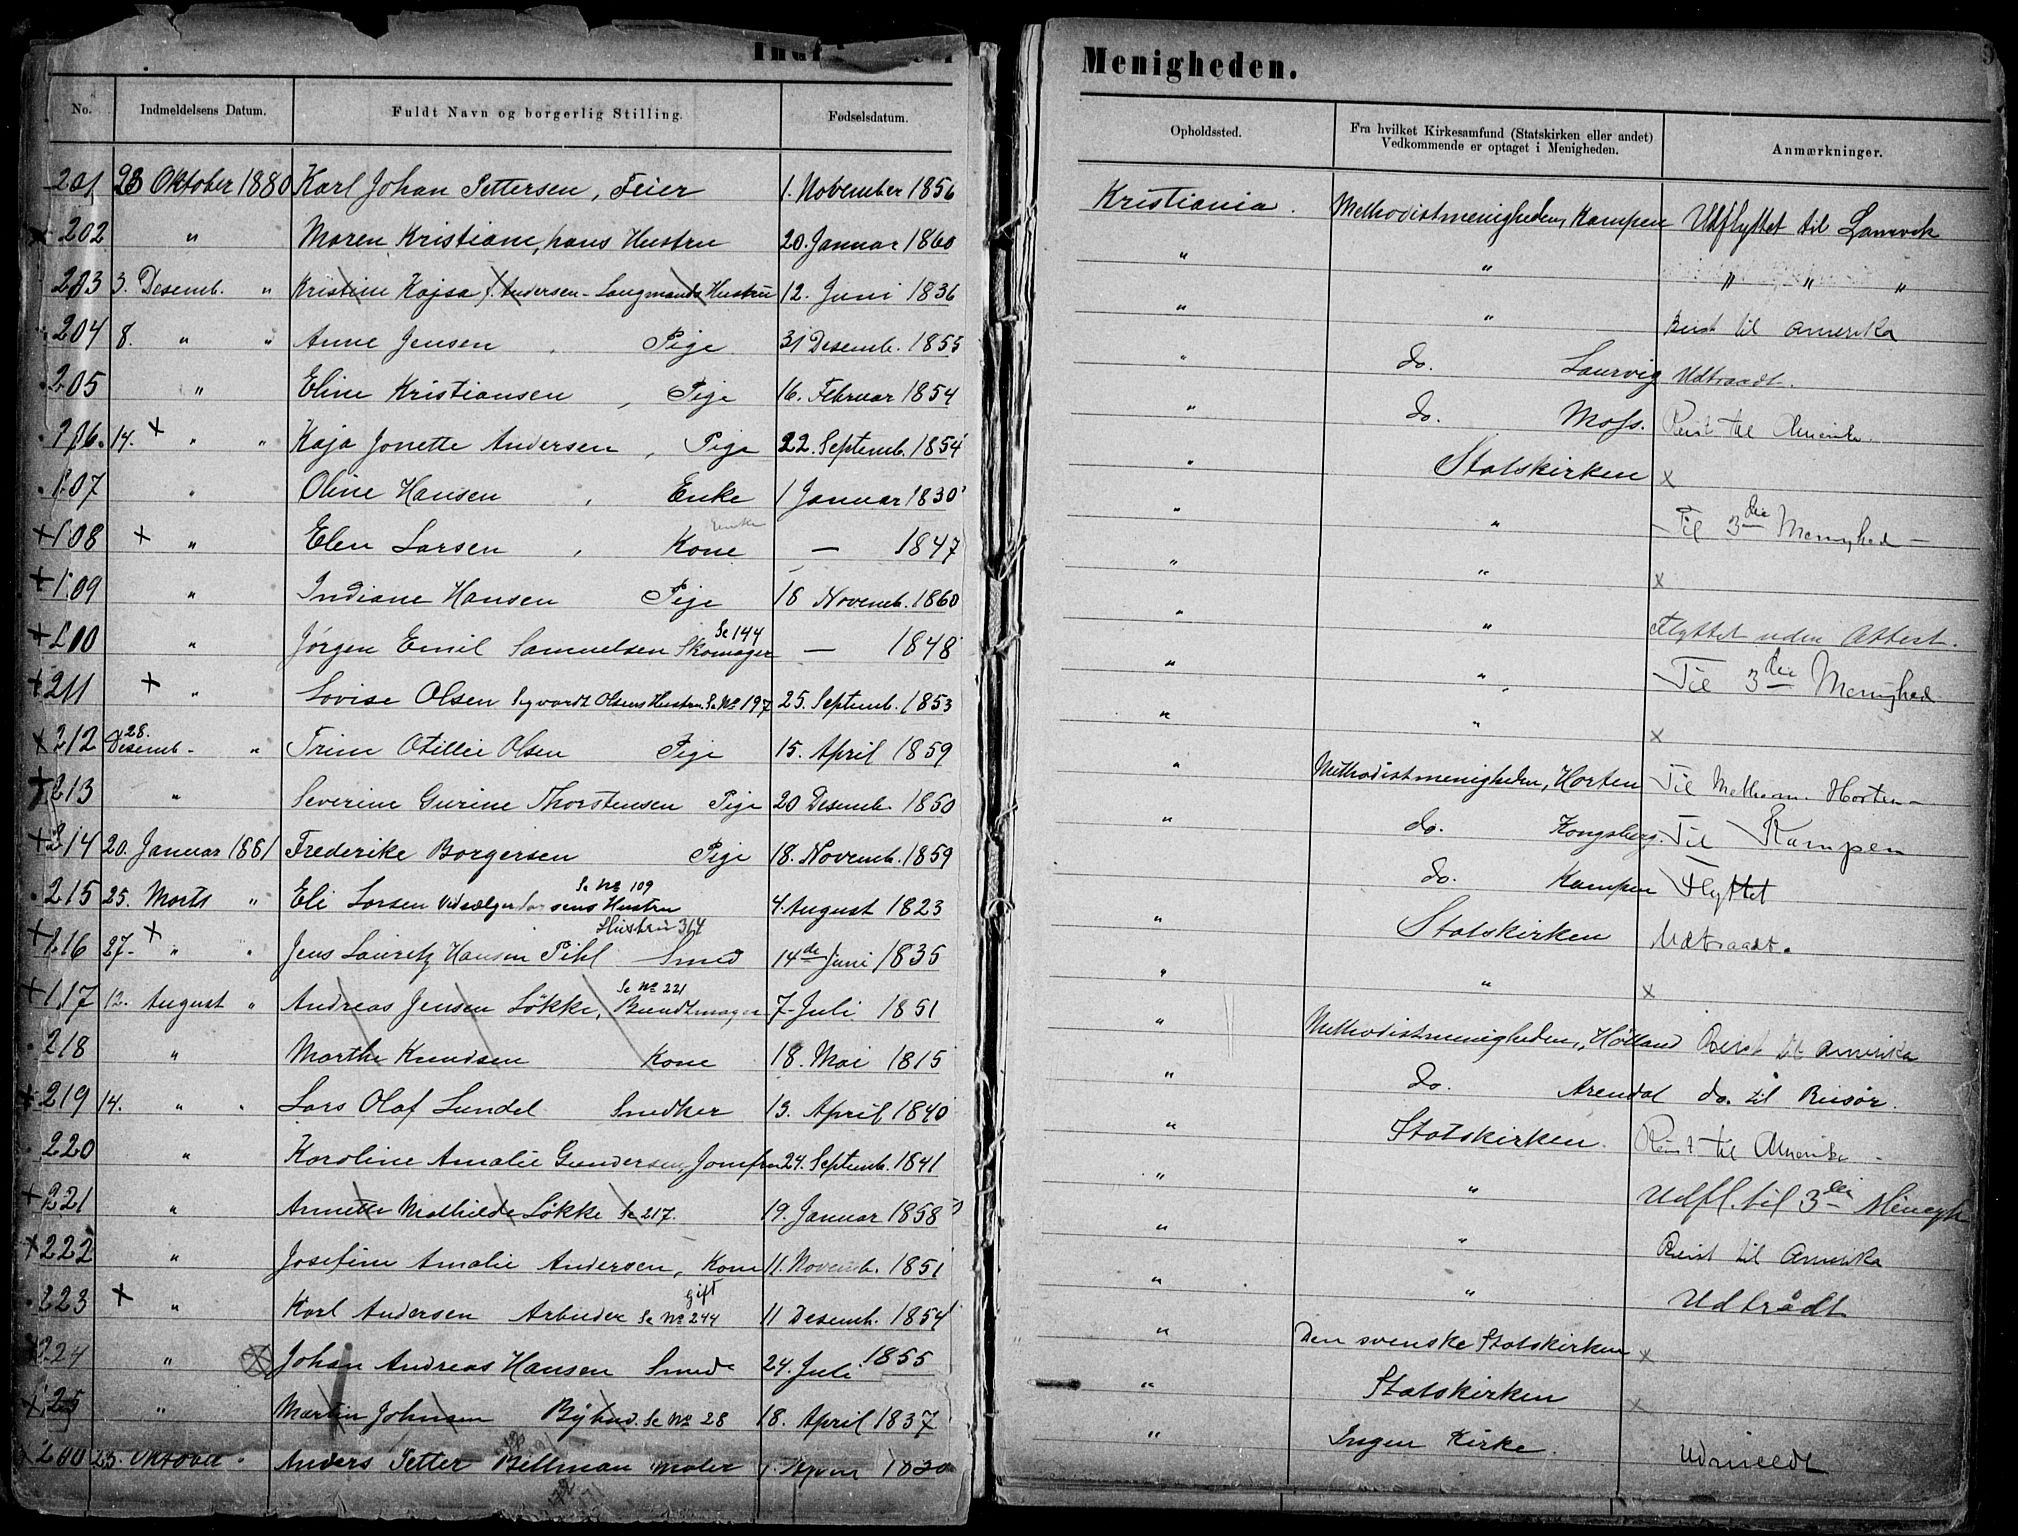 Menigheden.
No. Indmeldelsens Datum. Fuldt Navn og borgerlig Stilling. Fødselsdatum.
Opholdssted. Fra hvilket Kirkesamfund (Statskirken eller andet) Vedkommende er optaget i Menigheden. Anmærkninger.
201 23 Oktober 1880 Karl Johan Pettersen, Feier 1. November 1856 Kristiania. Methodistmenigheden, Kampen Udflyttet til
202 " Maren Kristiane, hans Hustru 20. Januar 1860 " " " " "
203 3. Desemb. " Kristine Kajsa Andersen - Hustru 12. Juni 1836 " " Reist til Amerika
204 8. " " Anne Jensen, Pige 31 Desemb. 1855 " do. Laurvig Udtraadt.
205 " Eline Kristiansen, Pige 16. Februar 1854 " do. Moss. Reist til Amerika.
206. 14. " " Kaja Jonette Andersen, Pige 22. Septemb. 1854 " Statskirken x
207 " Oline Hansen, Enke 1 Januar 1830 " " Til 3die Menighed
208 " Elen Larsen, Kone Enke — 1847 " " x
209 " Indiane Hansen Pige 18 Novemb. 1860 " " Flyttet uden Attest.
210 " Jørgen Emil Samuelsen Skomager Se 144 — 1848 " " Til 3die Menighed
211 " Lovise Olsen Sigvardt Olsens Hustru. Se No 197 25. Septemb. 1853 " " x
212 28. Desemb. " Trine Otillie Olsen Pige 15. April 1859 " Methodistmenigheden, Horten Til Methom. Horten
213 " Severine Gurine Thorstensen Pige 20 Desemb. 1850 " do. Kongsberg. Til Kampen
214 20. Januar 1881 Frederike Borgersen Pige 18. Novemb. 1859 " do. Kampen Flyttet
215 25. Marts " Eli Larsen Vedsælger Larsens Hustru Se No 109 4. August 1823 " Statskirken Udtraadt.
216 27. " " Jens Lauritz Hansen Pihl Smed Hustru 364 14de Juni 1835 " " x
217 12. August " Andreas Jensen Løkke, Bundtmager Se No 221 7. Juli 1851 " Methodistmenigheden, Høland Reist til Amerika
218 " Marthe Knudsen Kone 18. Mai 1815 " do. Arendal do. til Risør.
219 14. " " Lars Olaf Lundel Snedker 13. April 1840 " Statskirken. Reist til Amerika
220 " Karoline Amalie Gundersen, Jomfru 24. Septemb. 1841 " " Udfl. til 3die Menigh
221 " Annette Mathilde Løkke Se 217. 19. Januar 1858 " " Reist til Amerika
222 " Josefine Amalie Andersen, Kone 11. Novemb. 1851 " " Udtrådt
223 " Karl Andersen Arbeider gift Se No 244 11 Desemb. 1854 " Den svenske Statskirken x
224 " Johan Andreas Hansen Smed 24. Juli 1855 " Statskirken x
225 " Martin Johnsen Bybud. Se No 28 18. April 1837 " Ingen Kirke. Udmeldt
200 23. Oktober " Anders Petter Bellman Maler 1.